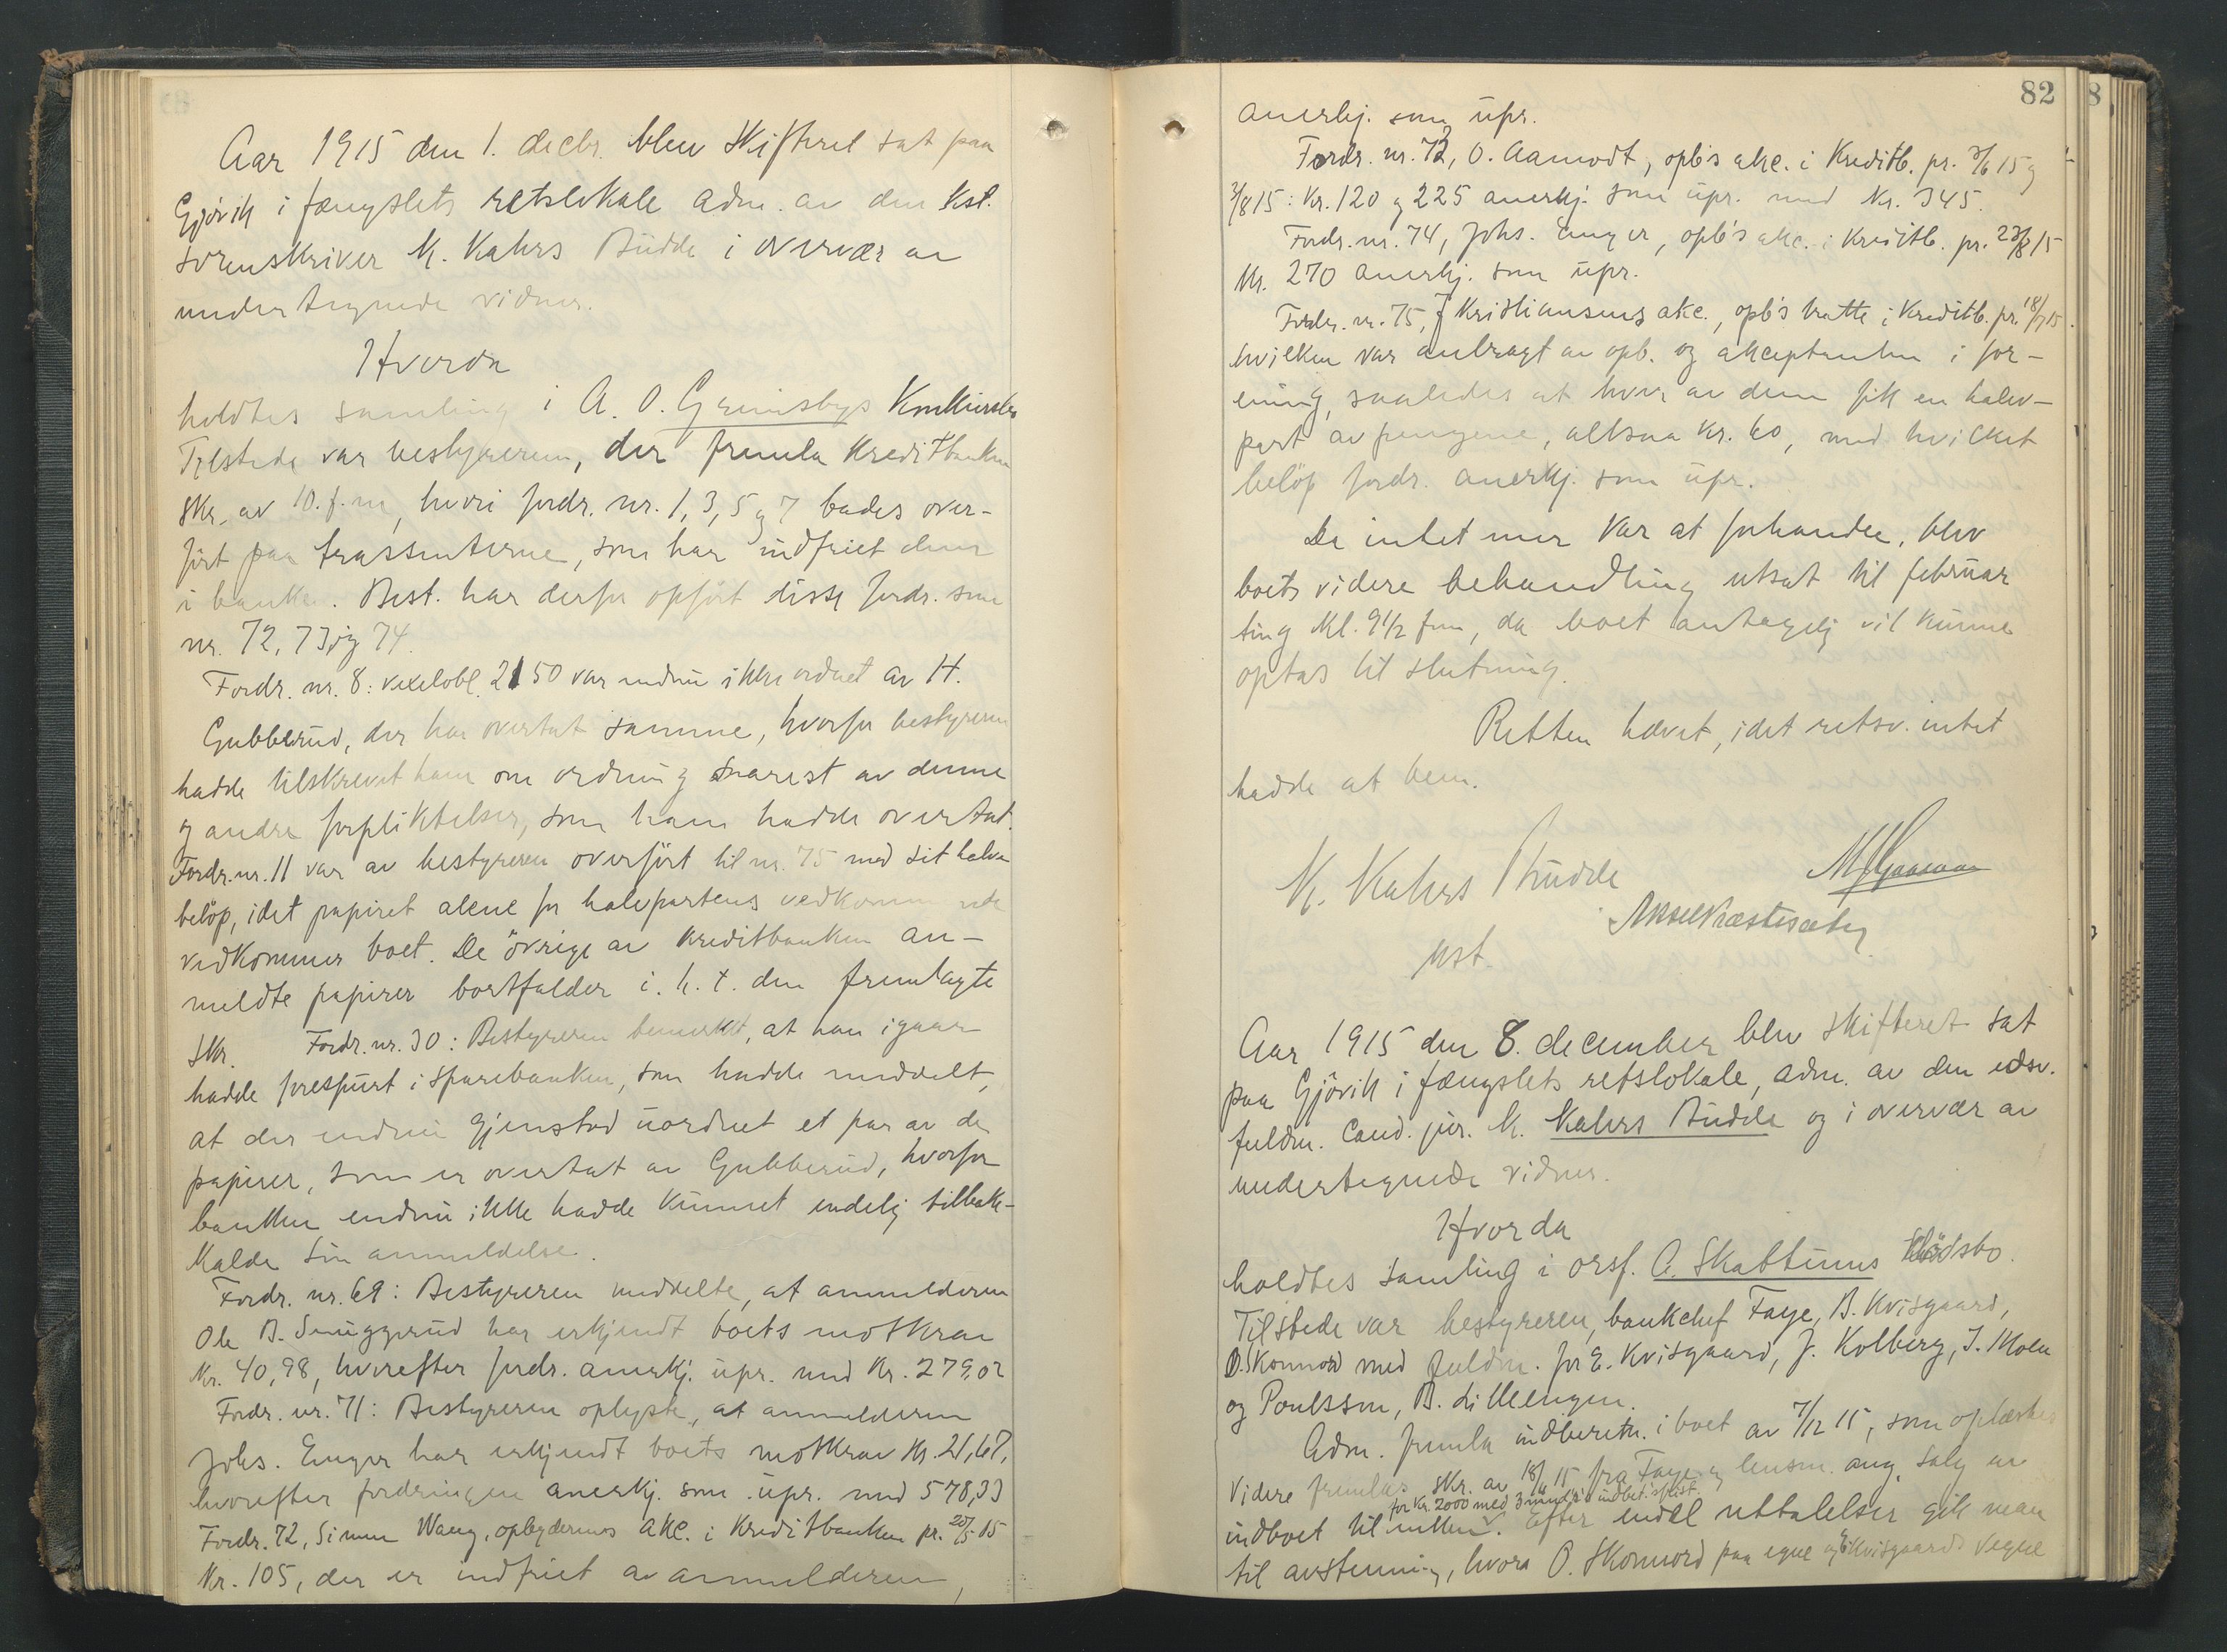 Aar 1915 den 1. decbr. blev skifteret sat paa
Gjøvik i fængslets retslokale adm. av den kst.
sorenskriver K. Kahrs Budde i overvær av
undertegnede vidner.
Hvorda
holdtes samling i A. O. Grimsbys Konkursbo
Tilstede var bestyreren, der fremla Kreditbanken
skr. av 10. f. m., hvori fordr. nr. 1, 3, 5 og 7 bades over-
ført paa trassenterne, som har indfriet dem
i banken. Best. har derfor opført disse fordr. som
nr. 72, 73 og 74.
Fordr. nr. 8: vexelobl. 2150 var endnu ikke ordnet av H.
Gubberud, der har overtat samme, hvorfor bestyreren
hadde tilskrevet ham om ordning snarest av denne
og andre forpliktelser, som han hadde overtat.
Fordr. nr. 11 var av bestyreren overført til nr. 75 med sit halve
beløp, idet papiret alene for halvpartens vedkommende
vedkommer boet. De øvrige av Kreditbanken an-
meldte papirer bortfalder i. h. t. den fremlagte
skr. Fordr. nr. 30: Bestyreren bemerket, at han igaar
hadde forespurt i Sparebanken, som hadde meddelt,
at der endnu gjenstod uordnet et par av de
papirer, som er overtat av Gubberud, hvorfor
banken endnu ikke hadde kunnet endelig tilbake-
kalde sin anmeldelse.
Fordr. nr. 69: Bestyreren meddelte, at anmelderen
Ole B. Snuggerud har erkjendt boets motkrav
Kr. 40,98, hvorefter fordr. anerkj. upr. med Kr. 279,02
Fordr. nr. 71: Bestyreren oplyste, at anmelderen
Johs. Enger har erkjendt boets motkrav Kr. 21,67,
hvorefter fordringen anerkj. som upr. med 578,33
Fordr. 72, Simen Wang, opbyderens akc. i Kreditbanken pr. 20/5 15
Kr. 105, der er indfriet av anmelderen,
82
anerkj. som upr.
Fordr. nr. 73, O. Aamodt, opb's akc. i Kreditb. pr. 3/6 15 og
3/8 15: Kr. 120 og 225 anerkj. som upr. med Kr. 345.
Fordr. nr. 74, Johs. Enger, opb's akc. i Kreditb. pr. 23/8 15
Kr. 270 anerkj. som upr.
Fordr. nr. 75, J Kristiansens akc., opb's tratte i Kreditb. pr. 18/7 15.
hvilken var anbragt av opb. og akceptanten i for-
ening, saaledes at hver av dem fik en halv-
part av pengene, altsaa Kr. 60, med hvilket
beløp fordr. anerkj. som upr.
Da intet mer var at forhandle, blev
boets videre behandling utsat til februar
ting kl. 9 1/2 fm, da boet antagelig vil kunne
optas til slutning.
Retten hævet, idet retsv. intet
hadde at bem.
K. Kahrs Budde
kst.
Aar 1915 den 8. december blev skifteret sat
paa Gjøvik i fængslets retslokale, adm. av den edsv.
fuldm. cand. jur. K. Kahrs Budde og i overvær av
undertegnede vidner.
Hvorda
holdtes samling i orsf. A. Skattums dødsbo.
Tilstede var bestyreren, bankchef Faye, B. Kvisgaard,
O. Skonnord med fuldm. for E. Kvisgaard, J. Kolberg, J. Moen
og Poulsson, B. Lilleengen.
Adm. fremla indberetn. i boet av 7/12 15, som oplæstes
Videre fremlas skr. av 18/11 15 fra Faye og lensm. ang. salg av
for Kr. 2000 med 3 mnd's indbet. frist.
indboet til enken. Efter endel uttalelser gik man
til avstemning, hvora O. Skonnord paa egne og E. Kvisgaards vegne